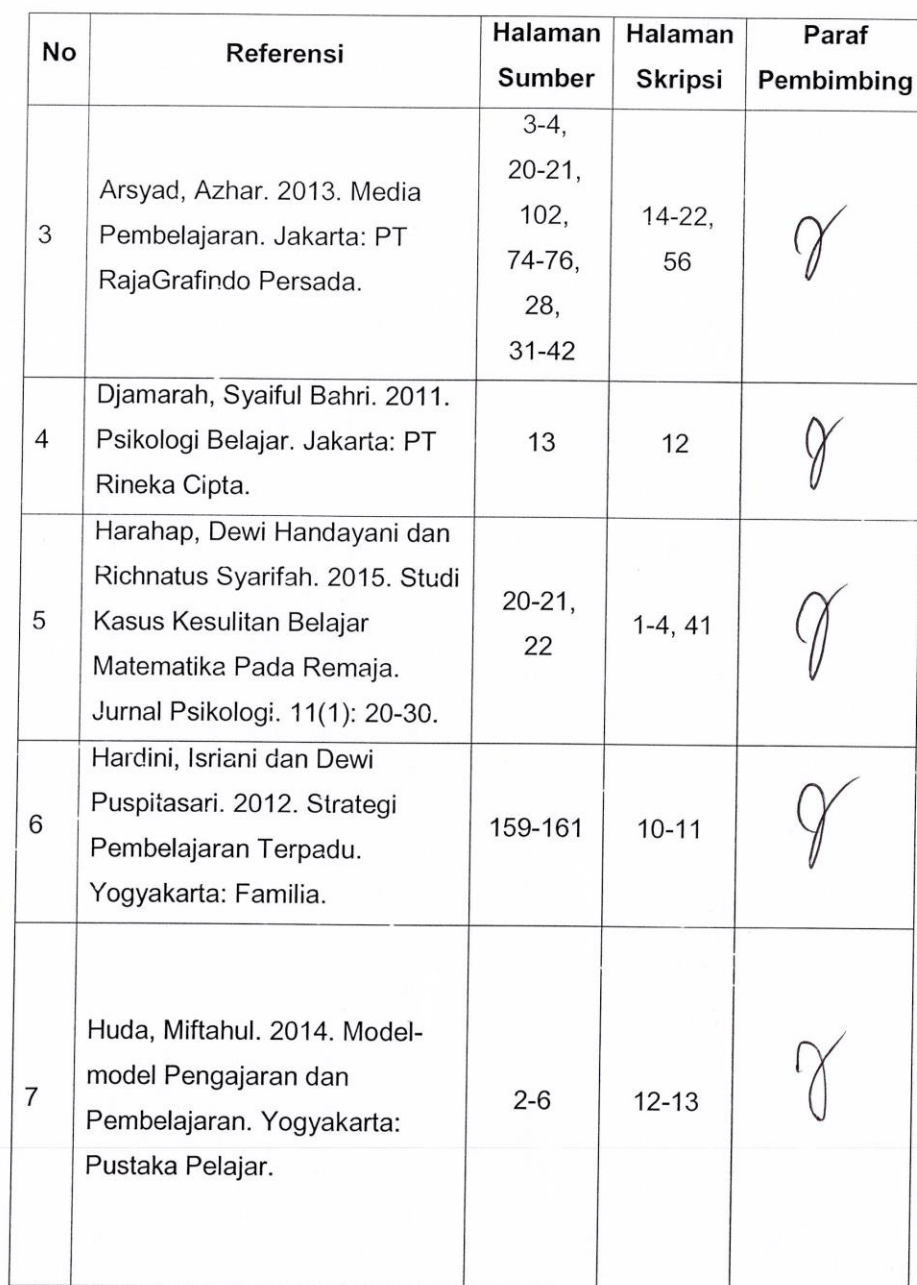 No
Referensi
Halaman
Sumber
Halaman
Skripsi
Paraf
Pembimbing
3
Arsyad, Azhar. 2013. Media
Pembelajaran. Jakarta: PT
RajaGrafindo Persada.
3-4,
20-21,
102,
74-76,
28,
31-42
14-22,
56
4
Djamarah, Syaiful Bahri. 2011.
Psikologi Belajar. Jakarta: PT
Rineka Cipta.
13
12
5
Harahap, Dewi Handayani dan
Richnatus Syarifah. 2015. Studi
Kasus Kesulitan Belajar
Matematika Pada Remaja.
Jurnal Psikologi. 11(1): 20-30.
20-21,
22
1-4, 41
6
Hardini, Isriani dan Dewi
Puspitasari. 2012. Strategi
Pembelajaran Terpadu.
Yogyakarta: Familia.
159-161
10-11
7
Huda, Miftahul. 2014. Model-
model Pengajaran dan
Pembelajaran. Yogyakarta:
Pustaka Pelajar.
2-6
12-13